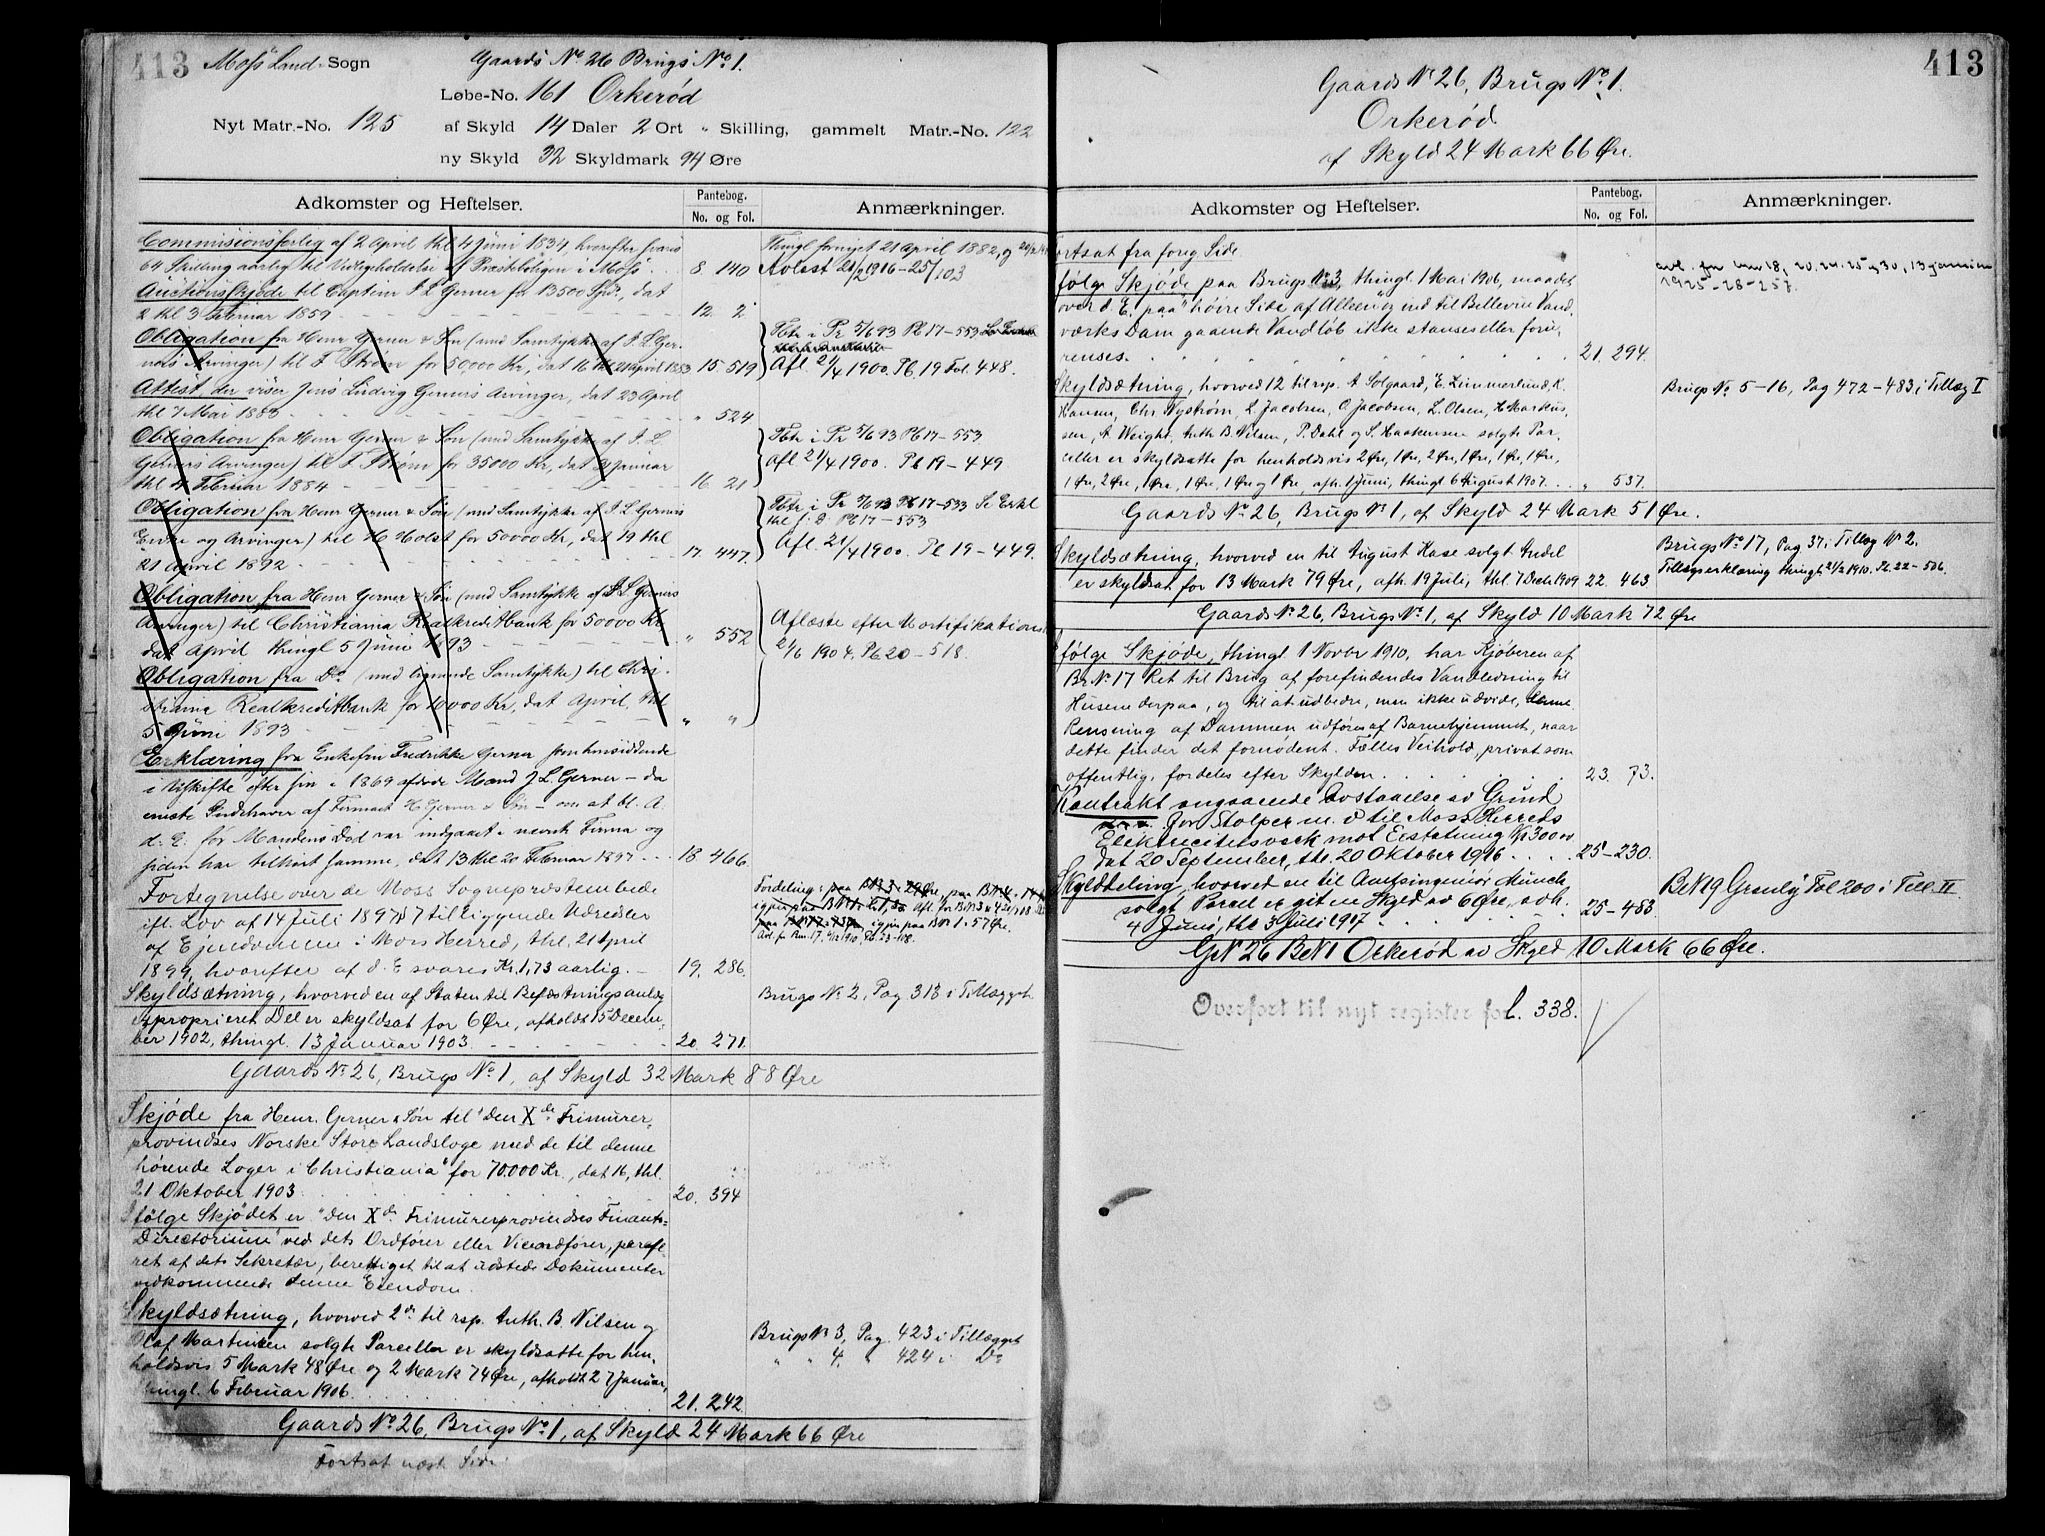 413 Moss Land Sogn Gaards No 26 Brugs No 1.
Løbe-No. 161 Orkerød
Nyt Matr.-No. 125 af Skyld 14 Daler 2 Ort " Skilling, gammelt Matr.-No. 122
ny Skyld 32 Skyldmark 94 Øre
Adkomster og Heftelser. Pantebog. No. og Fol. Anmærkninger.
Commisionsforlig af 2 April thl 4 Juni 1834, hvorefter svares
64 Skilling aarlig til Vedligeholdelse af Præsteboligen i Moss 8 140
Thingl fornyet 21 April 1882, og
Avlæst 21/2 1916-25/103
Auctionsskjøde til Captein J L Gerner for 13500 Spd, dat
2 thl 3 Februar 1859 12 2
Obligation fra Henr Gerner & Søn (med Samtykke af J. L Ger-
ners Arvinger) til F Strøm for 50,000 Kr, dat 16 thl 21 April 1883 15 519
Ftbr i Pr 5/6 93 Pb 17-553
Afl. 21/4 1900. Pb. 19 Fol 448.
Attest, der viser Jens Ludvig Gerners Arvinger, dat 23 April
thl 7 Mai 1883 " 524
Obligation fra Henr Gerner & Søn (med Samtykke af J. L.
Gerners Arvinger) til F. Strøm for 35000 Kr, dat Januar
thl 4 Februar 1884 16 21
Ftbr i Pr 5/6 93 Pb 17-553
afl 21/4 1900. Pb 19-449
Obligation fra Henr Gerner & Søn (med Samtykke af J. L Gerners
Enke og Arvinger) til H Holst for 50000 Kr, dat 19 thl
21 April 1892 17 447.
Ftbr i Pr 5/6 93 Pb 17-533 Se Erkl
thl s. d. Pb 17-553
Afl. 21/4 1900. Pb 19-449.
Obligation fra Henr Gerner & Søn (med Samtykke af J L Gerners
Arvinger) til Christiania Realkreditbank for 50000 Kr
dat April thingl 5 Juni 1893 " 552
Aflæste efter Mortifikation
21/6 1904. Pb 20-518.
Obligation fra Do (med lignende Samtykke) til Chri-
stiania Realkreditbank for 10000 Kr, dat April, thl
5 Juni 1893 " "
Erklæring fra Enkefru Fredrikke Gerner som hensiddende
i Uskifte efter sin i 1869 afdøde Mand J L. Gerner - da
eneste Indehaver af Firmaet H. Gerner & Søn - om at bl. A.
d. E. før Mandens Død var indgaaet i nævnte Firma og
siden har tilhørt samme, dat 13 thl 20 Februar 1897 18 466.
Fortegnelse over de Moss Sognepræstembede
ifl. Lov af 14 Juli 1897 § 7 tilliggende Udredsler
af Ejendommene i Moss Herred, thl. 21 April
1899, hvorefter af d. E svares Kr. 1,73 aarlig. 19. 286.
Skyldsætning, hvorved en af Staten til Befæstningsanlæg
exproprieret Del er skyldsat for 6 Øre, afholdt 15 Decem-
ber 1902, thingl. 13 Januar 1903. 20. 271.
Brugs No 2, Pag 318 i Tillægget
Gaards No 26, Brugs No 1, af Skyld 32 Mark 88 Øre
Skjøde fra Henr. Gerner & Søn til "Den Xde Frimurer-
provindses Norske Store Landsloge med de til denne
hørende Loger i Christiania" for 70.000 Kr., dat 16, thl.
21 Oktober 1903 20. 394
Ifølge Skjødet er "Den Xde Frimurerprovindses Finants-
Directorium" ved dets Ordfører eller Viceordfører, parafe-
ret af dets Sekretær, berettiget til at udstede Dokumenter
vedkommende denne Eiendom.
Skyldsætning, hvorved 2de til rsp. Anth. B. Nilsen og
Olaf Martinsen solgte Parceller er skyldsatte for hen-
holdsvis 5 Mark 48 Øre og 2 Mark 74 Øre, afholdt 27 Januar,
thingl. 6 Februar 1906 21. 242.
Brugs No 3, Pag. 423 i Tillægget
" " 4, " 424 i Do
Gaards No 26, Brugs No 1, af Skyld 24 Mark 66 Øre
Fortsat næste Side.
413
Gaards No 26, Brugs No 1.
Orkerød
af Skyld 24 Mark 66 Øre.
Adkomster og Heftelser. Pantebog. No. og Fol. Anmærkninger.
Fortsat fra forrig Side
Ifølge Skjøde paa Brugs No 3, thingl. 1 Mai 1906, maa det
over d. E. paa "høire Side af Alleen" og ned til Bellevue Vand-
værks Dam gaaende Vandløb ikke stanses eller foru-
renses. 21. 294.
Skyldsætning, hvorved 12 til rsp. A Solgaard, E. Zimmerlund, K.
Hansen, Chr. Nystrøm, L Jacobsen, O. Jacobsen, L. Olsen, H Markus-
sen, A Weight, Anth. B. Nilsen, P. Dahl og S. Haakensen solgte Par-
celler er skyldsatte for henholdsvis 2 Øre, 1 Øre, 2 Øre, 1 Øre, 1 Øre, 1 Øre,
1 Øre, 2 Øre, 1 Øre, 1 Øre, 1 Øre og 1 Øre, afh. 1 Juni, thingl 6 August 1907. " 537.
Brugs No 5-16, Pag 472-483 i Tillæg I
Gaards No 26, Brugs No 1, af Skyld 24 Mark 51 Øre.
Skyldsætning, hvorved en til August Hase solgt Andel
er skyldsat for 13 Mark 79 Øre, afh. 19 Juli, thl. 7 Decbr 1909 22. 463
Brugs No 17, Pag 37 i Tillæg No 2.
Tillægserklæring thingl. 2/2 1910. Pb. 22-506.
Gaards No 26, Brugs No 1, af Skyld 10 Mark 72 Øre
Ifølge Skjøde, thingl. 1 Novbr 1910, har Kjøberen af
Br No 17 Ret til Brug af forefindendes Vandledning til
Husene derpaa, og til at udbedre, men ikke udvide, denne
Rensning af Dammen udføres af Barnehjemmet, naar
dette finder det fornødent. Fælles Veihold, privat som
offentlig, fordeles efter Skylden 23. 73.
Kontrakt angaaende Avstaaelse av Grund
for Stolper m. v. til Moss Herreds
Elektricitetsverk mot Erstatning Kr 300
dat 20 September, thl. 20 Oktober 1916 25-230.
Skylddeling, hvorved en til Amtsingeniør Munch
solgt Parcel er git en Skyld av 6 Øre, avh.
4 Juni, thl 3 Juli 1917 25-483
Br No 19 Granly Fol 200 i Till. II
G No 26 Br No 1 Orkerød av Skyld 10 Mark 66 Øre.
Overført til nyt register fol. 338.